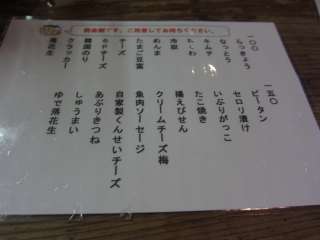 現金制です。ご用意してお待ちください。
一〇〇
らっきょう
なっとう
キムチ
たくわん
冷奴
めんま
たまご豆富
チーズ
もやチーズ
韓国のり
クラッカー
落花生
一五〇
ピータン
セロリ漬け
いぶりがっこ
たこ焼き
揚えびせん
クリームチーズ梅
魚肉ソーセージ
自家製くんせいチーズ
あぶりきつね
しゅうまい
ゆで落花生